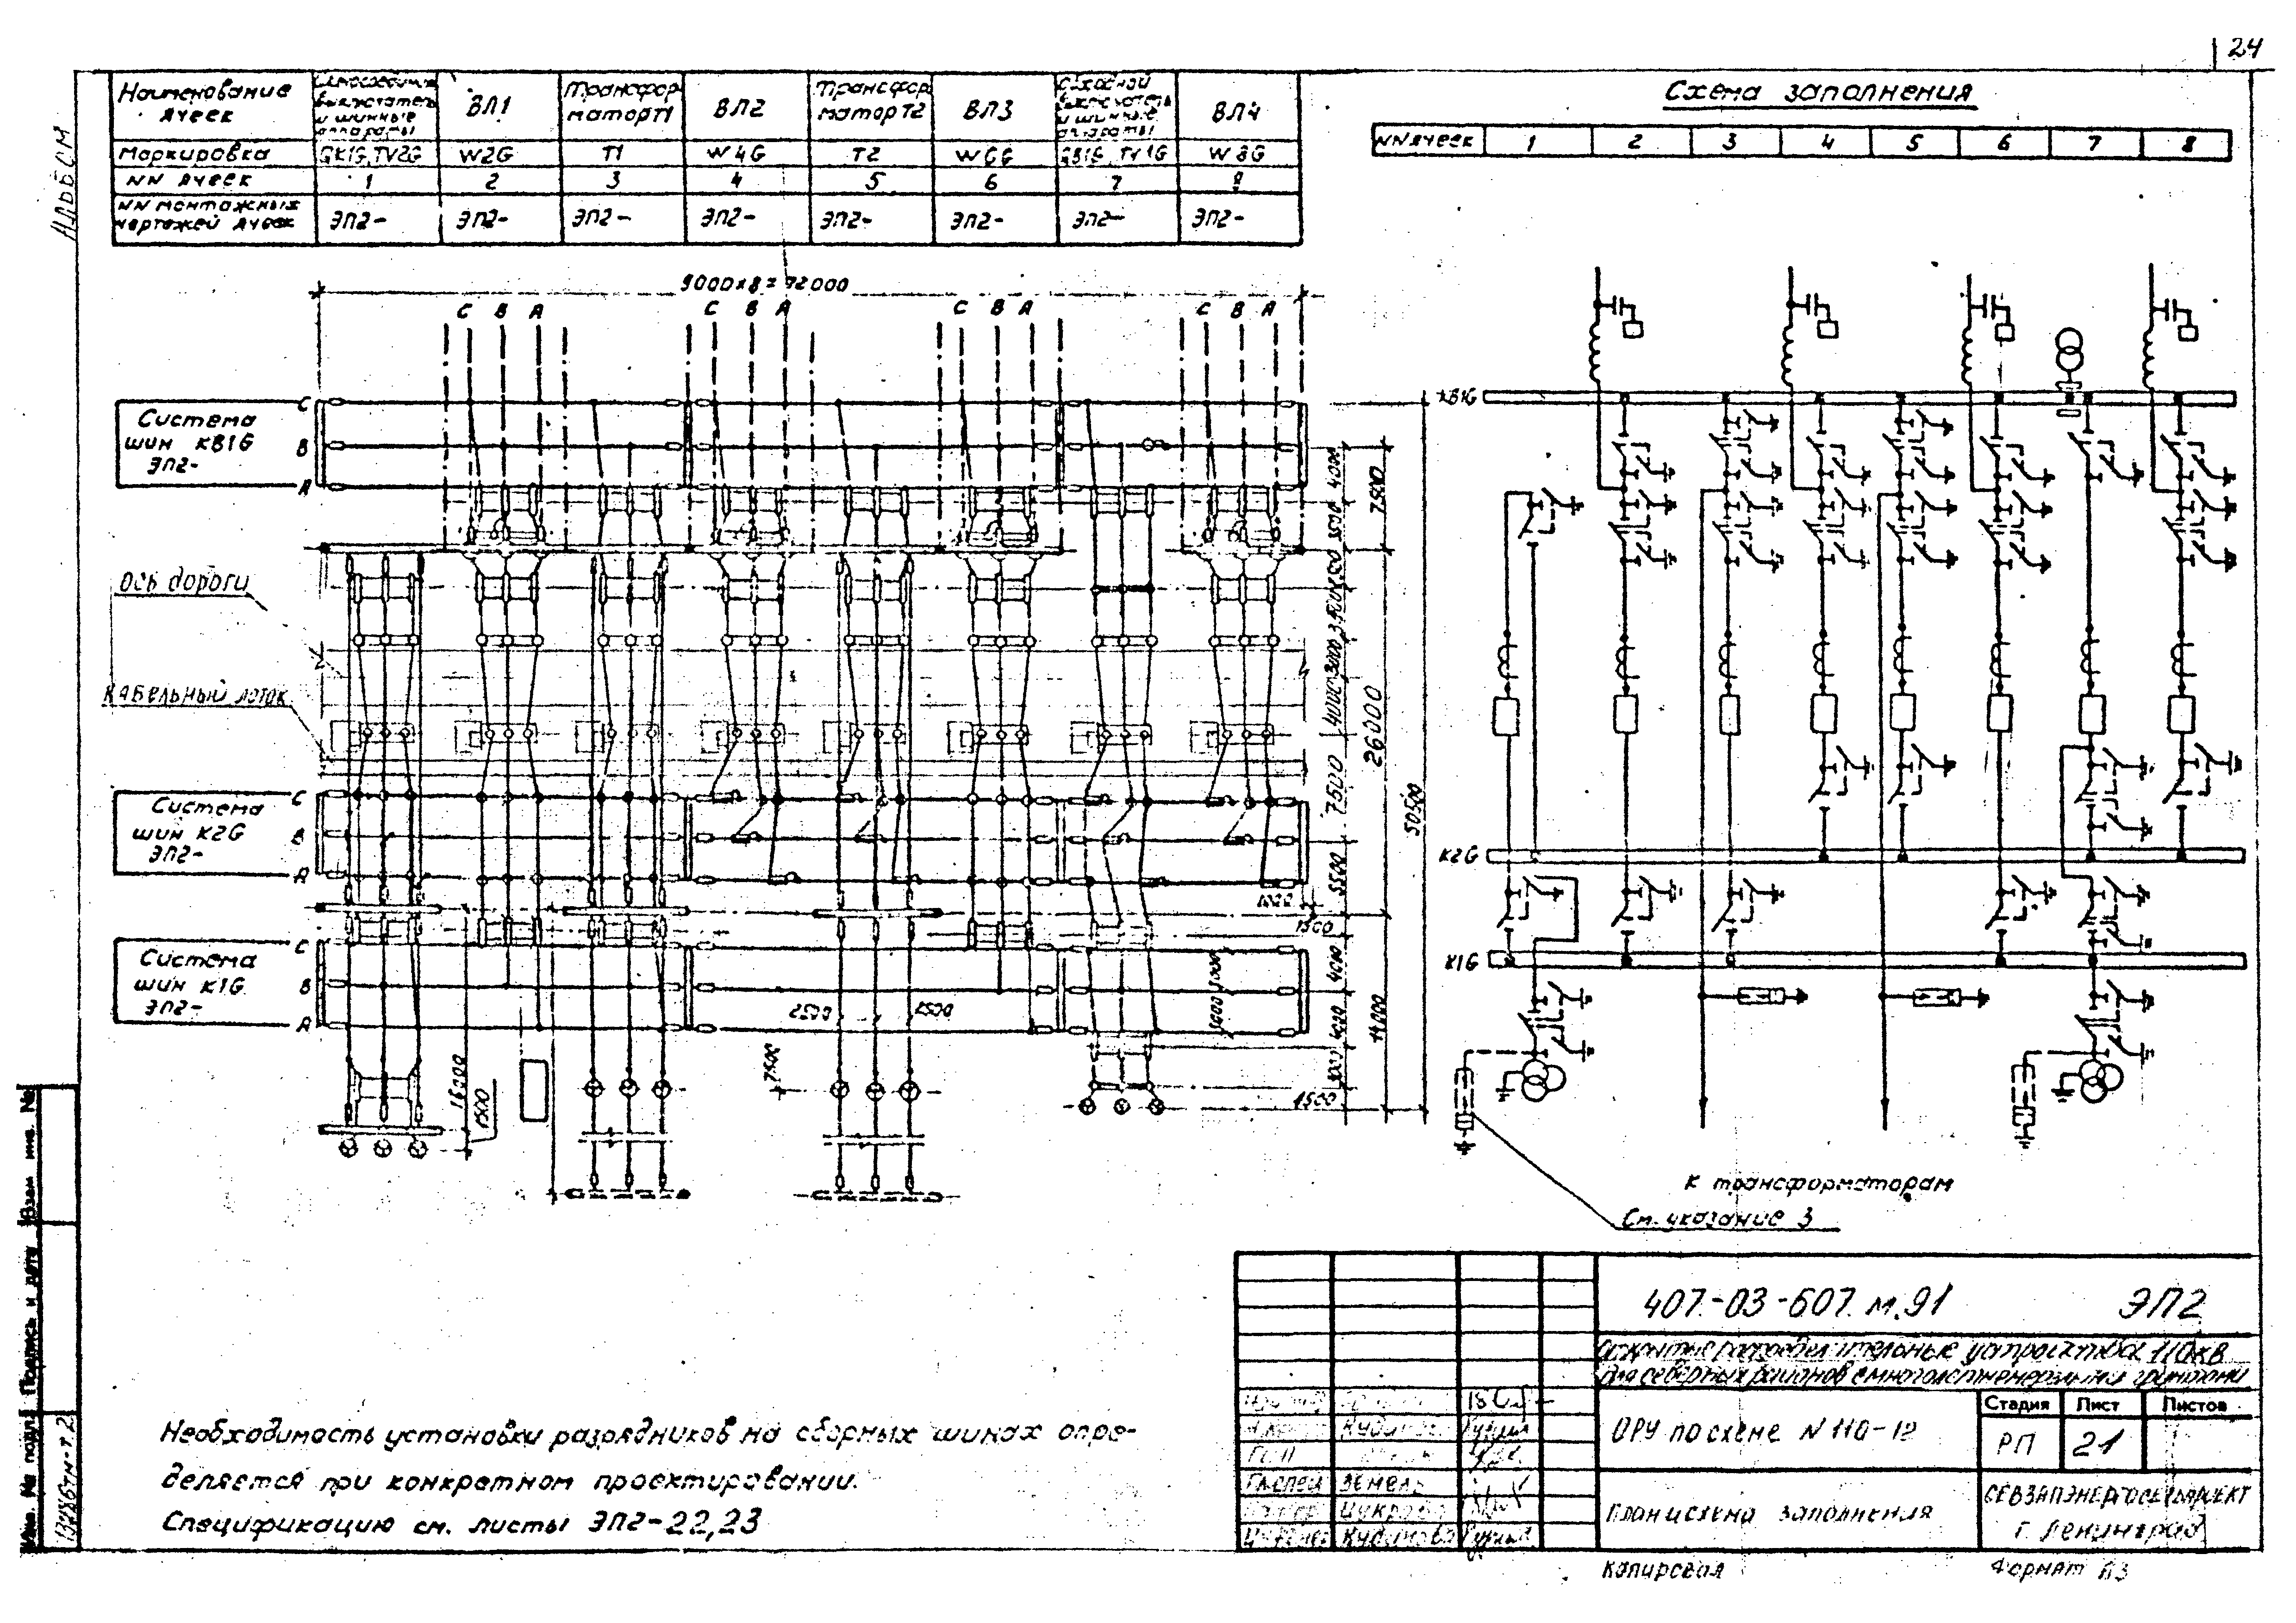 24
Альбом
Наименование ячеек
выключатель и шинные аппараты
ВЛ1
Трансформатор Т1
ВЛ2
Трансформатор Т2
ВЛ3
Обходной выключатель и шинные аппараты
ВЛ4
Маркировка
QK1G, TV2G
W2G
T1
W4G
T2
W6G
QB1G, TV1G
W8G
NN ячеек
1 2 3 4 5 6 7 8
NN монтажных чертежей ячеек
ЭП2- ЭП2- ЭП2- ЭП2- ЭП2- ЭП2- ЭП2- ЭП2-
Схема заполнения
NN ячеек 1 2 3 4 5 6 7 8
9000х8=72000
C B A C B A C B A C B A
Система
шин КВ1G
ЭП2-
C
B
A
Ось дороги
Кабельный лоток
Система
шин К2G
ЭП2-
C
B
A
Система
шин К1G
ЭП2-
C
B
A
4000
7500
26000
4000
3000
7500
5500
50500
1000
1500
4000
14000
4000
3000
1500
3000
3000
2500
2500
7500
16000
1500
КВ1G
К2G
К1G
К трансформаторам
См. указание 3
Необходимость установки разрядников на сборных шинах опре-
деляется при конкретном проектировании.
Спецификацию см. листы ЭП2-22,23
407-03-607.м.91 ЭП2
Открытые распределительные устройства 110кв
для северных районов с многолетнемерзлыми грунтами
ОРУ по схеме N 110-12
Стадия Лист Листов
РП 21
План и схема заполнения
СЕВЗАПЭНЕРГОСЕТЬПРОЕКТ
г. Ленинград
Гл.спец Земель
Кудинова
Копировал
Формат А3
Инв. № подл.
Подпись и дата
Взам. инв. №